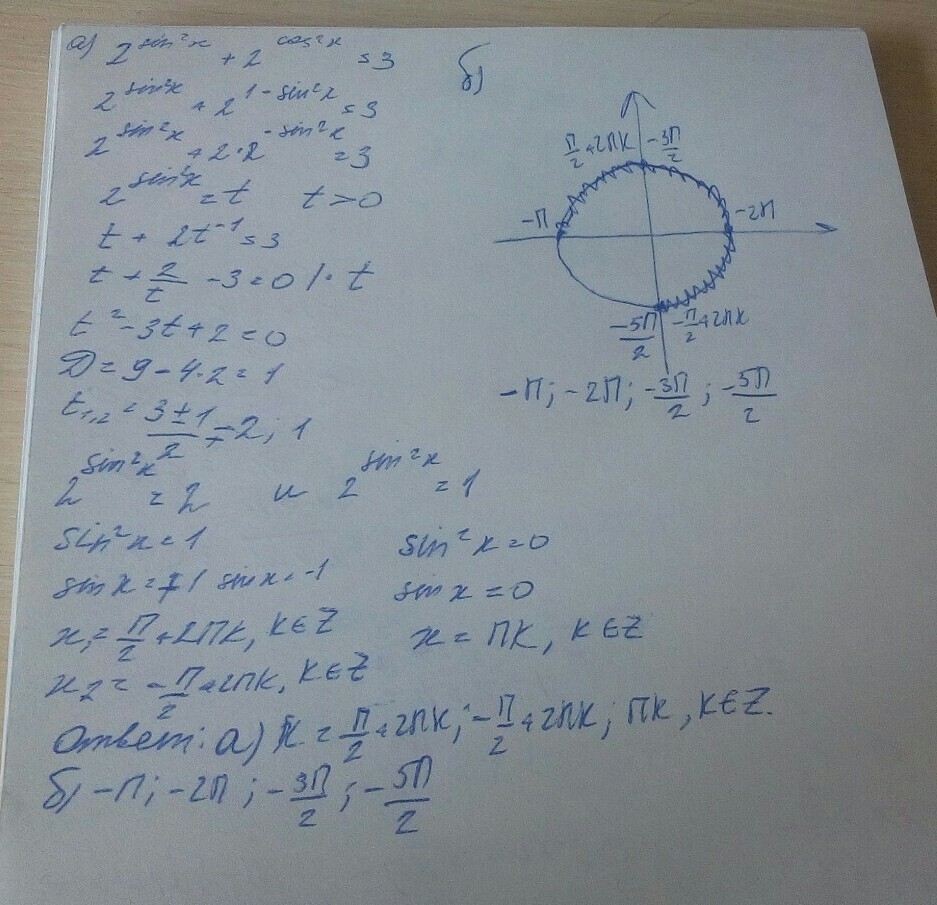 а) 2^sin²x + 2^cos²x = 3
2^sin²x + 2^1-sin²x = 3
2^sin²x + 2·2^-sin²x = 3
2^sin²x = t t>0
t + 2t⁻¹ = 3
t + 2/t - 3 = 0 |· t
t² - 3t + 2 = 0
D = 9 - 4·2 = 1
t₁,₂ = (3±1)/2 = 2; 1
2^sin²x = 2 и 2^sin²x = 1
sin²x = 1 sin²x = 0
sin x = 1 sin x = -1 sin x = 0
x₁ = П/2 + 2Пk, k∈Z x = Пk, k∈Z
x₂ = -П/2 + 2Пk, k∈Z
Ответ: а) x = П/2 + 2Пk; -П/2 + 2Пk; Пk, k∈Z.
б) -П; -2П; -3П/2; -5П/2
б)
П/2 + 2Пk -3П/2
-П -2П
-5П/2 -П/2 + 2Пk
-П; -2П; -3П/2; -5П/2